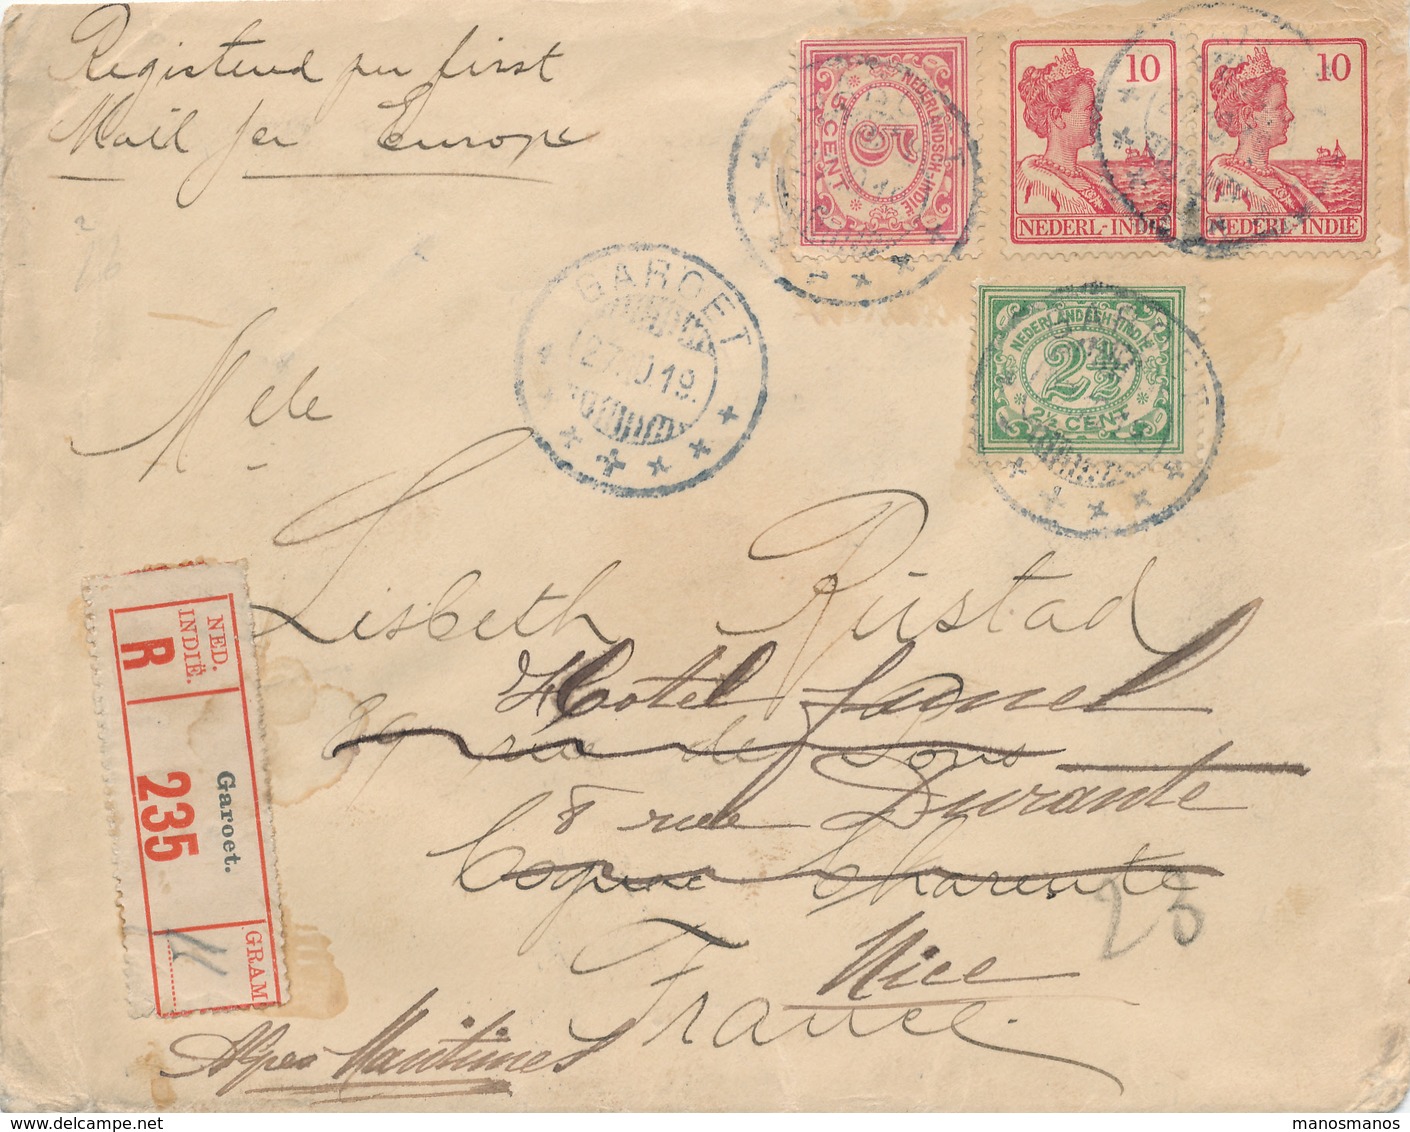 Registered per first
Mail for Europe
5
NEDERLANDSCH-INDIË
CENT
10
NEDERL-INDIË
10
NEDERL-INDIË
NEDERLANDSCH INDIË
2½
2½ CENT
GAROET
27.10.19.
Mele
Lisbeth Rüstad
Hotel
89 rue de
8 rue Durante
Cognac Charente
23
Nice
France.
Alpes Maritimes
NED.
INDIË.
R
Garoet.
235
GRAM
manosmanos